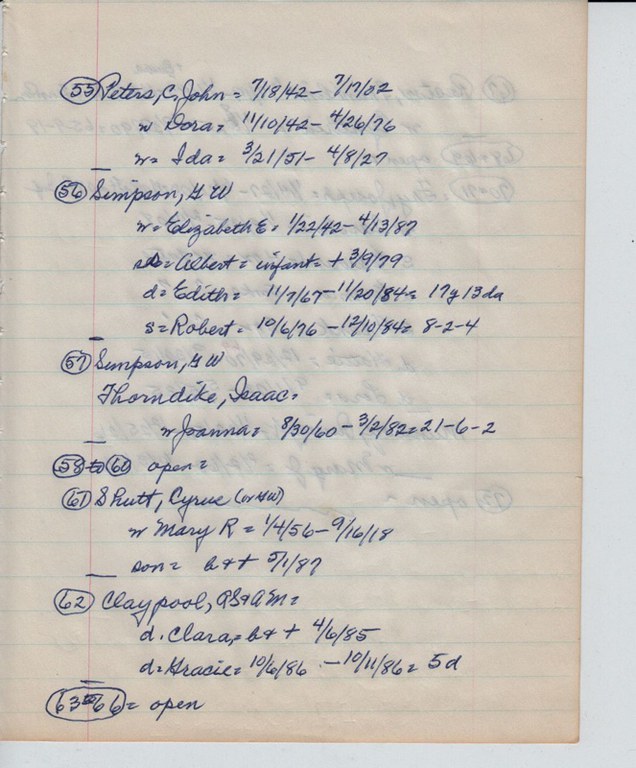 55 Peters, C, John = 7/18/42 - 7/17/02
w Dora = 11/10/42 - 4/26/76
w = Ida = 3/21/51 - 4/8/27
56 Simpson, G W
w = Elizabeth E = 1/22/42 - 4/13/87
s = Albert = infant = + 3/9/79
d = Edith = 11/7/67 - 11/20/84 = 17y 13da
s = Robert = 10/6/76 - 12/10/84 = 8-2-4
57 Simpson, G W
Thorndike, Isaac =
w Joanna = 8/30/60 - 3/2/82 = 21-6-2
58 to 60 open =
61 Shutt, Cyrus (or GW)
w Mary R = 1/4/56 - 9/16/18
son = b & + 5/1/87
62 Claypool, AS & AM =
d. Clara = b & + 4/6/85
d = Gracie = 10/6/86 - 10/11/86 = 5d
63 to 66 = open